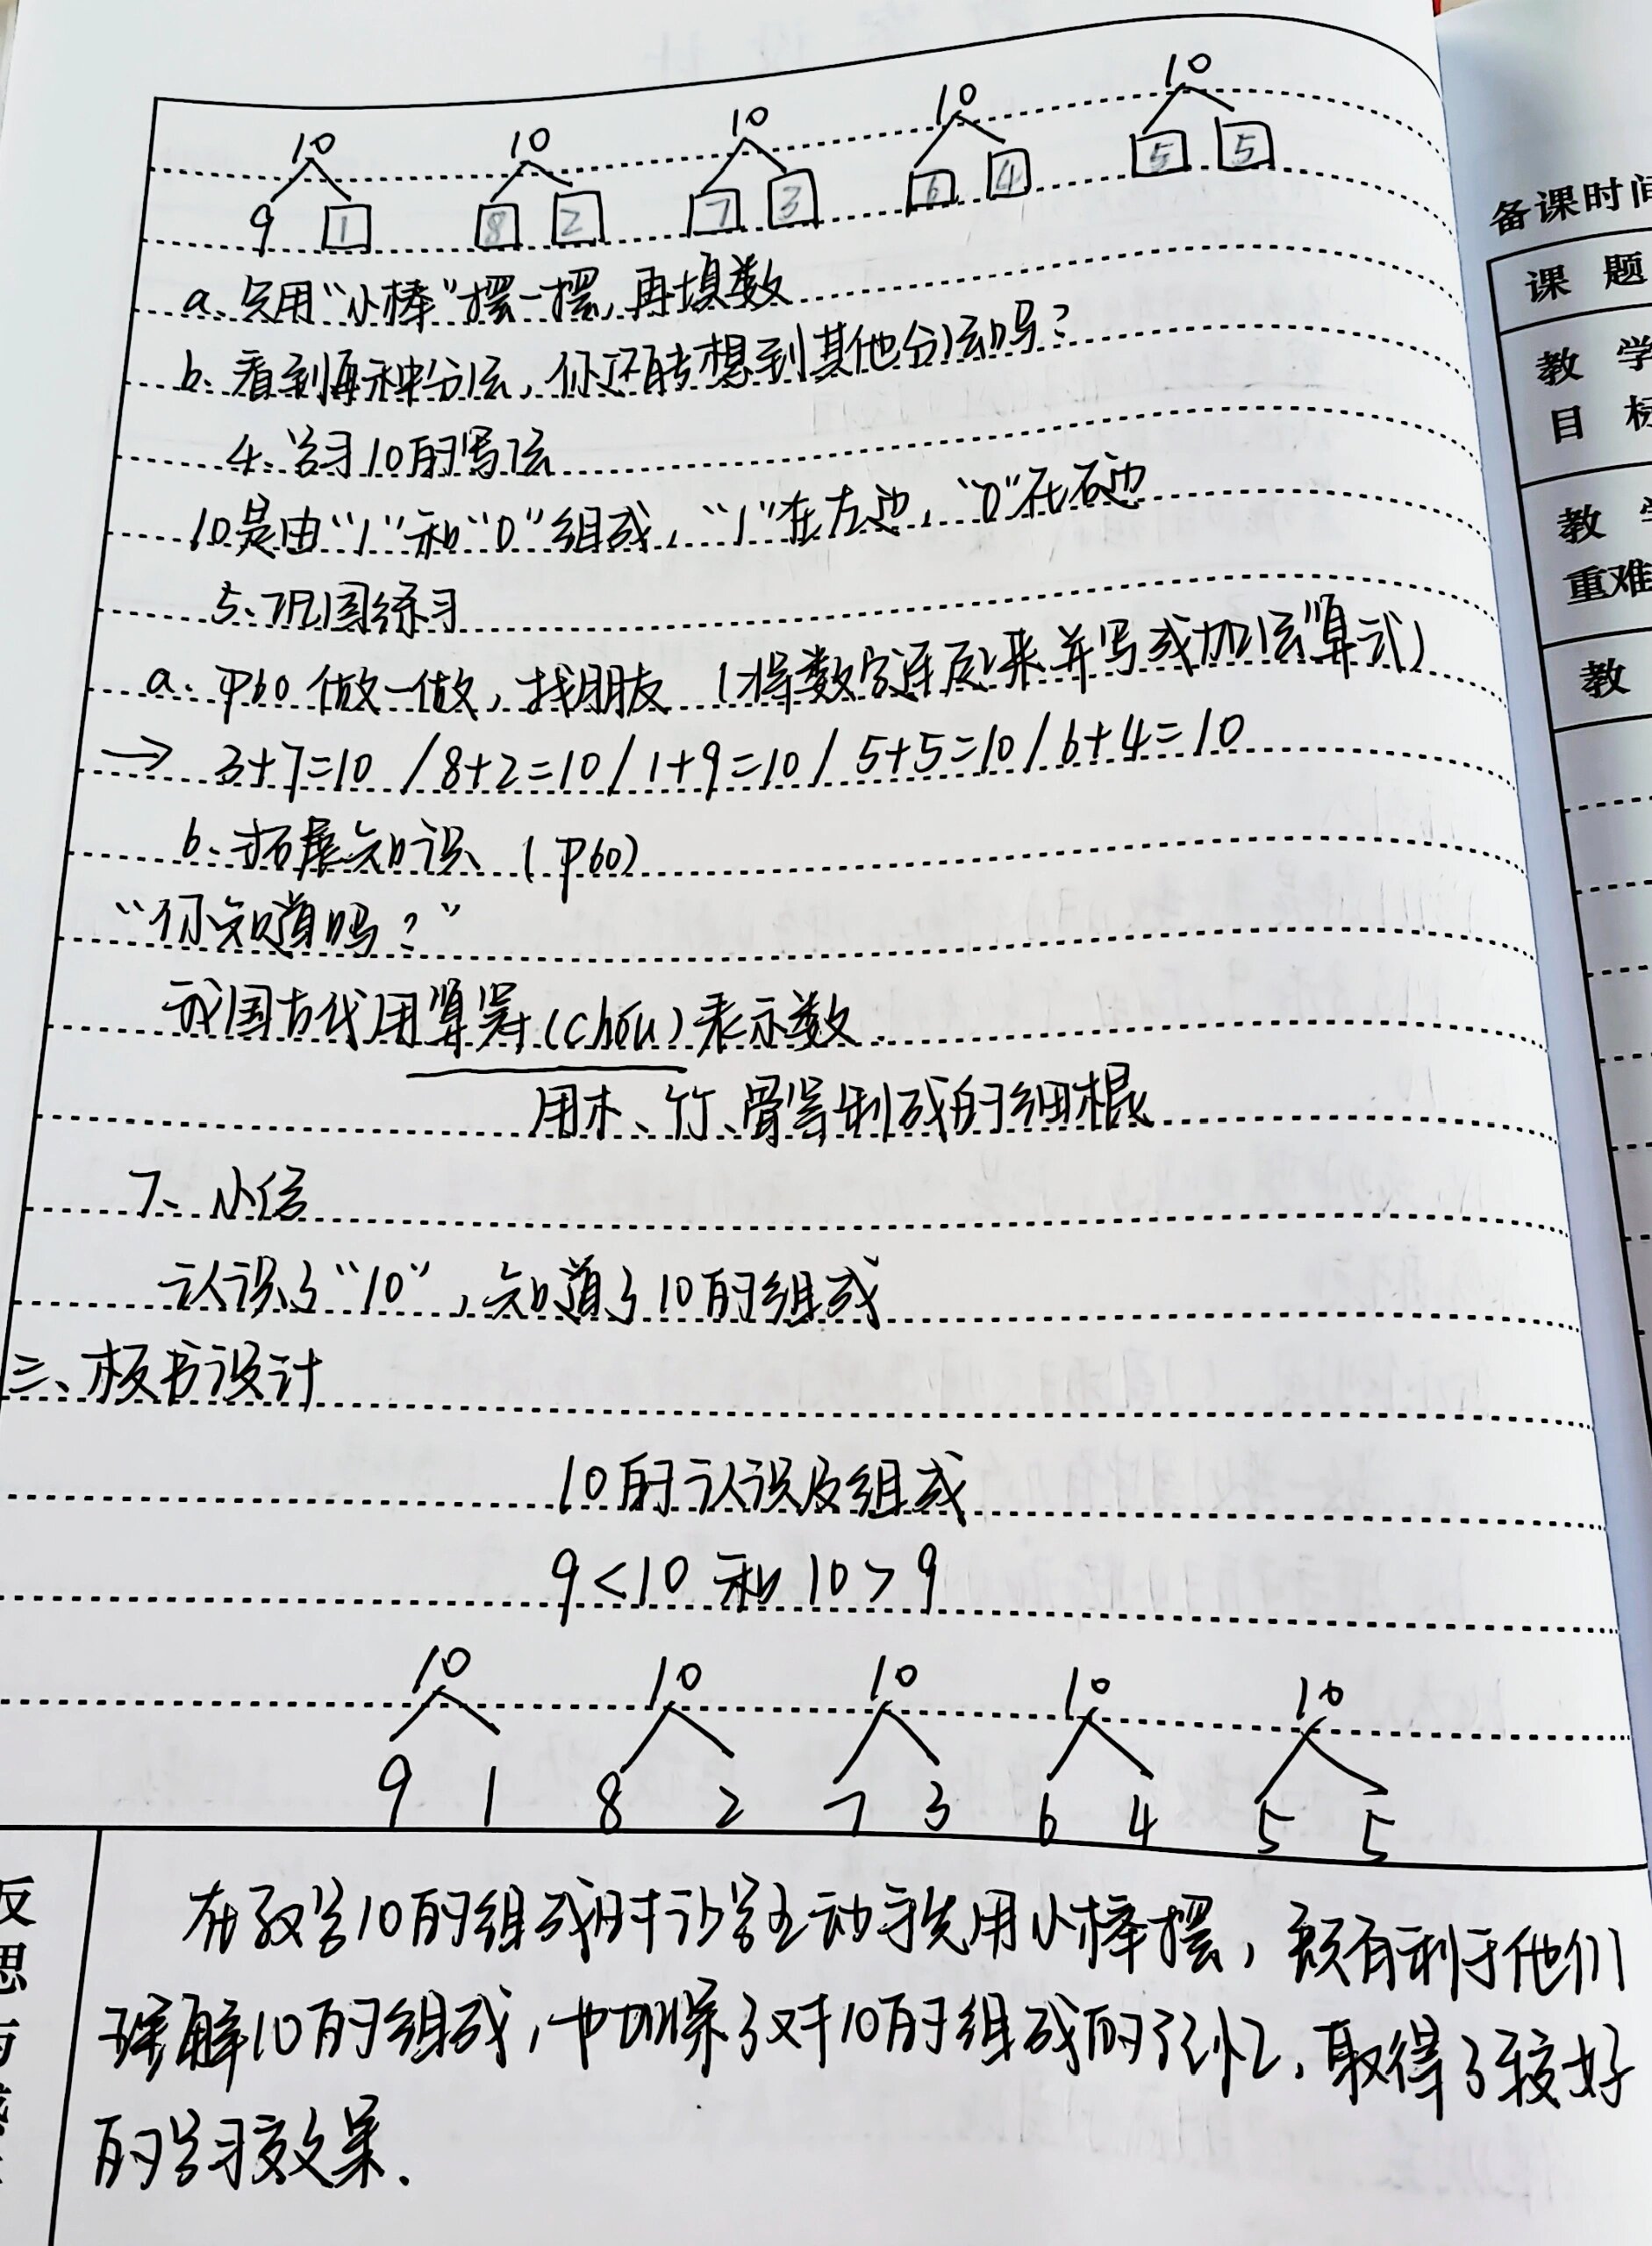 10 10 10 10 10
9 1 8 2 7 3 6 4 5 5
a、先用“小棒”摆一摆,再填数
b、看到每种分法,你还能想到其他分法吗?
4、学习10的写法
10是由“1”和“0”组成,“1”在左边,“0”在右边
5、巩固练习
a、P60 做一做,找朋友 (将数字连起来并写成加法算式)
→ 3+7=10 /8+2=10/1+9=10/ 5+5=10/6+4=10
b、拓展知识 (P60)
“你知道吗?”
我国古代用算筹(chóu)表示数.
用木、竹、骨等制成的细棍
7、小结
认识了“10”,知道了10的组成
三、板书设计
10的认识及组成
9<10 和 10>9
10 10 10 10 10
9 1 8 2 7 3 6 4 5 5
在教学10的组成时让学生动手先用小棒摆,颇有利于他们
理解10的组成,也加深了对10的组成的记忆,取得了较好
的学习效果.
反
思
备课时间
课 题
教 学
目 标
教 学
重难
教